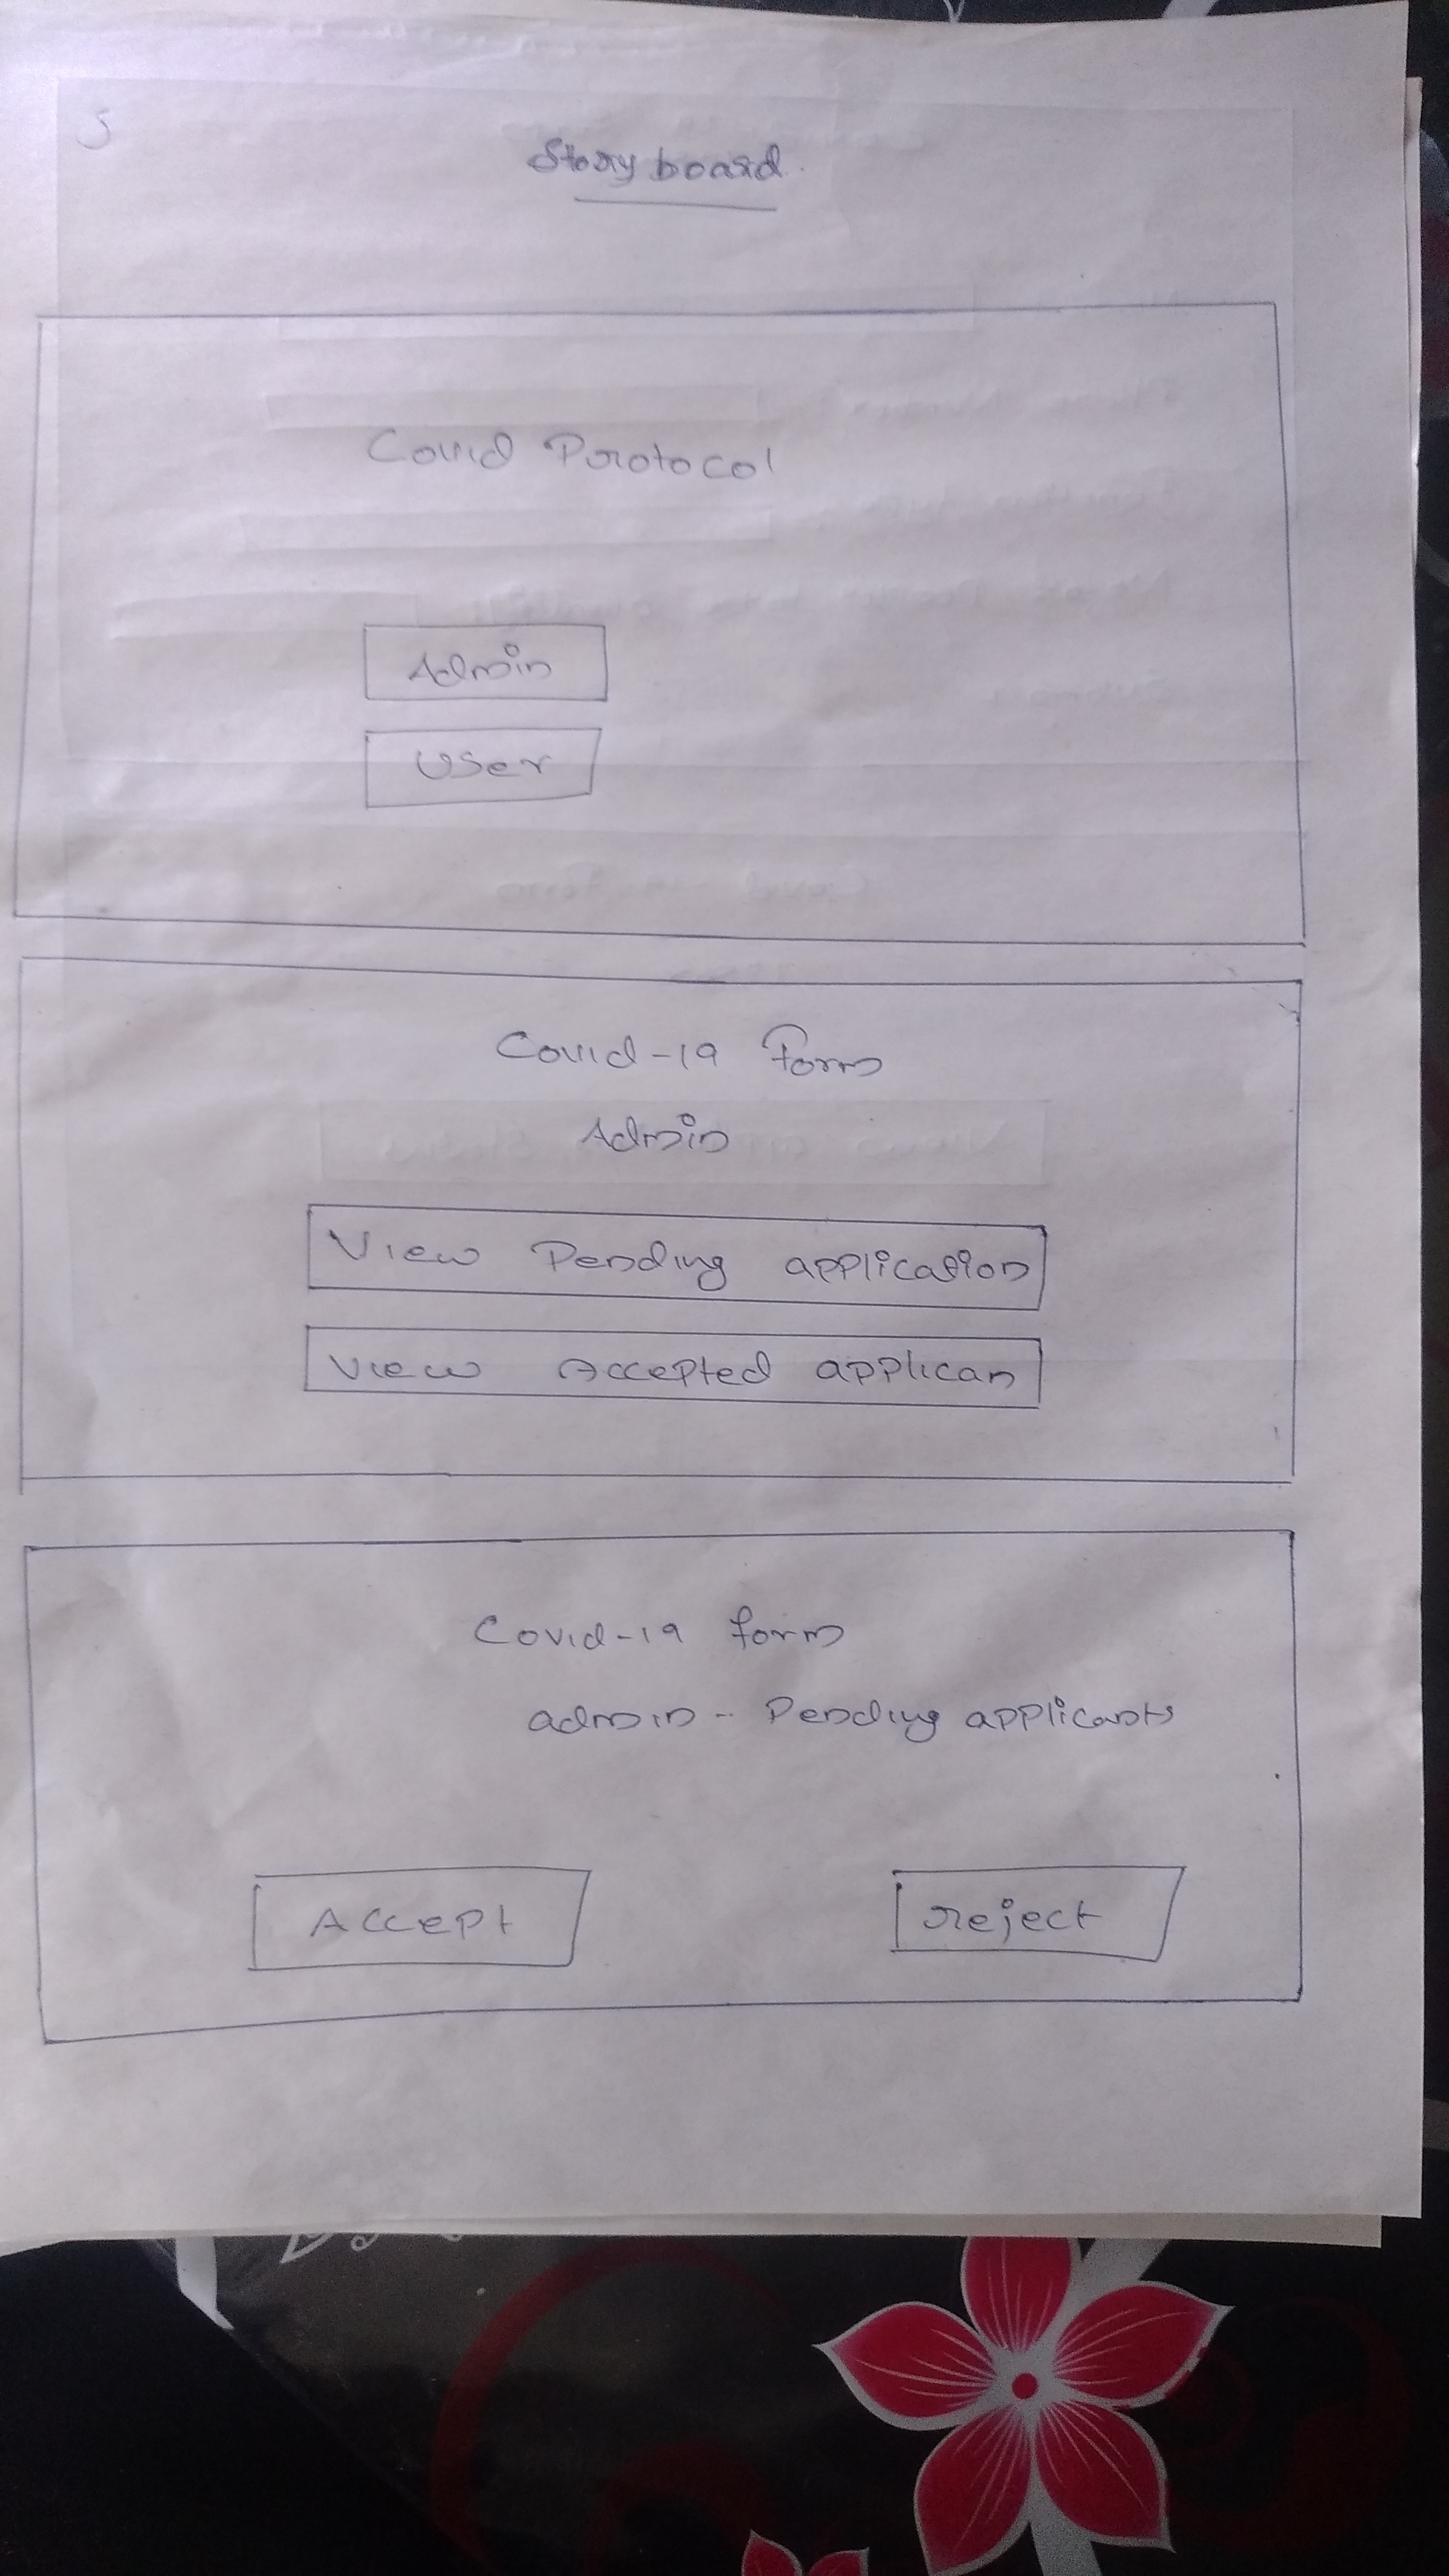 Story board.
Covid Protocol
Admin
User
Covid-19 Form
Admin
View Pending application
View Accepted applican
Covid-19 form
admin - Pending applicants
Accept
reject